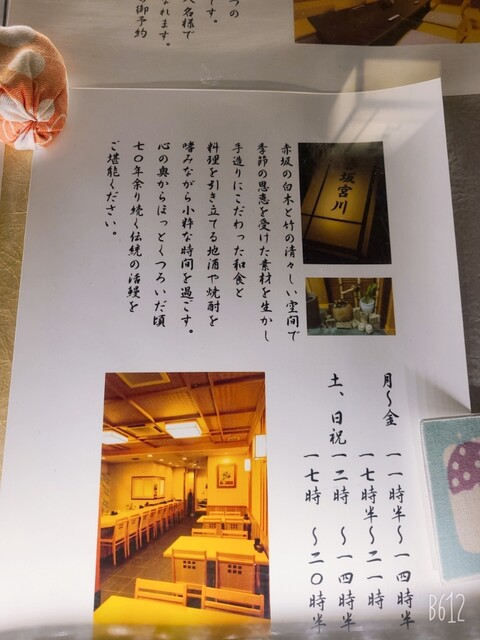 つの
です。
名様で
なれます。
御予約
坂宮川
赤坂の白木と竹の清々しい空間で
季節の恩恵を受けた素材を生かし
手造りにこだわった和食と
料理を引き立てる地酒や焼酎を
嗜みながら小粋な時間を過ごす。
心の奥からほっとくつろいだ頃
七〇年余り続く伝統の活鰻を
ご堪能ください。
月〜金 一一時半〜一四時半
一七時半〜二一時
土、日祝 一二時 〜一四時半
一七時 〜二〇時半
B612